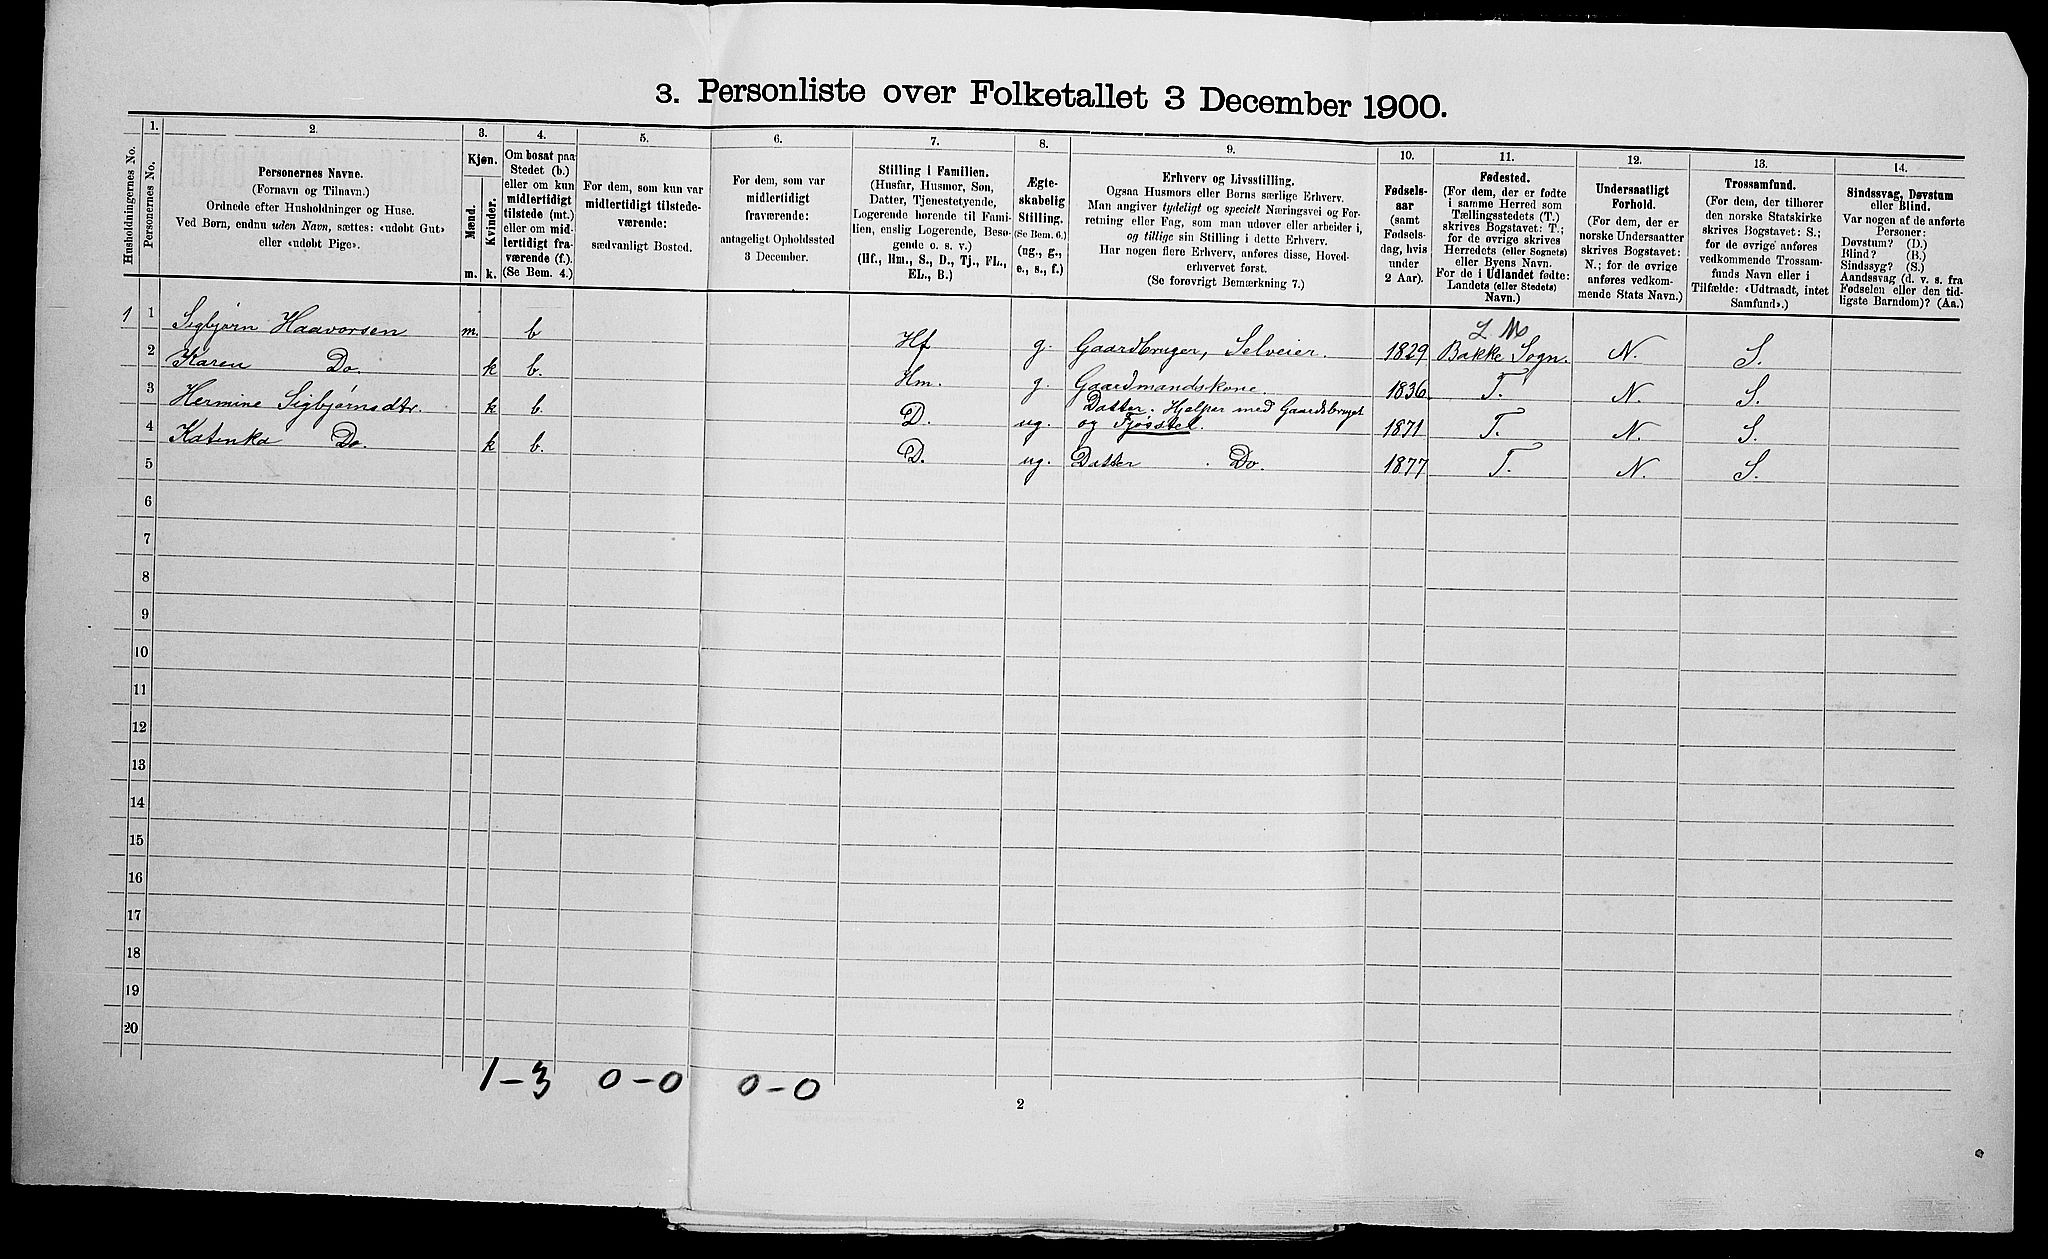 3. Personliste over Folketallet 3 December 1900.
Husholdningernes No.
1.
Personernes No.
2.
Personernes Navne.
(Fornavn og Tilnavn.)
Ordnede efter Husholdninger og Huse.
Ved Børn, endnu uden Navn, sættes: «udøbt Gut»
eller «udøbt Pige».
3.
Kjøn.
Mænd.
Kvinder.
m.
k.
4.
Om bosat paa
Stedet (b.)
eller om kun
midlertidigt
tilstede (mt.)
eller om mid-
lertidigt fra-
værende (f.).
(Se Bem. 4.)
5.
For dem, som kun var
midlertidigt tilstede-
værende:
sædvanligt Bosted.
6.
For dem, som var
midlertidigt
fraværende:
antageligt Opholdssted
3 December.
7.
Stilling i Familien.
(Husfar, Husmor, Søn,
Datter, Tjenestetyende,
Logerende hørende til Fami-
lien, enslig Logerende, Besø-
gende o. s. v.)
(Hf., Hm., S., D., Tj., FL.,
EL., B.)
8.
Ægte-
skabelig
Stilling.
(Se Bem. 6.)
(ug., g.,
e., s., f.)
9.
Erhverv og Livsstilling.
Ogsaa Husmors eller Børns særlige Erhverv.
Man angiver tydeligt og specielt Næringsvei og For-
retning eller Fag, som man udøver eller arbeider i,
og tillige sin Stilling i dette Erhverv.
Har nogen flere Erhverv, anføres disse, Hoved-
erhvervet først.
(Se forøvrigt Bemærkning 7.)
10.
Fødsels-
aar
(samt
Fødsels-
dag, hvis
under
2 Aar).
11.
Fødested.
(For dem, der er fødte
i samme Herred som
Tællingsstedets (T.)
skrives Bogstavet: T.;
for de øvrige skrives
Herredets (eller Sognets)
eller Byens Navn.
For de i Udlandet fødte:
Landets (eller Stedets)
Navn.)
12.
Undersaatligt
Forhold.
(For dem, der er
norske Undersaatter
skrives Bogstavet:
N.; for de øvrige
anføres vedkom-
mende Stats Navn.)
13.
Trossamfund.
(For dem, der tilhører
den norske Statskirke
skrives Bogstavet: S.;
for de øvrige anføres
vedkommende Trossam-
funds Navn eller i
Tilfælde: «Udtraadt, intet
Samfund».)
14.
Sindssvag, Døvstum
eller Blind.
Var nogen af de anførte
Personer:
Døvstum? (D.)
Blind? (B.)
Sindssyg? (S.)
Aandssvag (d. v. s. fra
Fødselen eller den tid-
ligste Barndom)? (Aa.)
1 1 Sigbjørn Haavorsen m. b Hf g. Gaardbruger, Selveier. 1829 Bakke Sogn. N. S.
2 Karen Do. k b. Hm. g. Gaardmandskone. 1836 T. N. S.
3 Hermine Sigbjørnsdtr. k b. D. ug. Datter. Hjelper med Gaardsbruget
og Fjøsstel. 1871 T. N. S.
4 Katenka Do. k b. D. ug. Datter . Do. 1877 T. N. S.
5
6
7
8
9
10
11
12
13
14
15
16
17
18
19
20
1-3 0-0 0-0
2